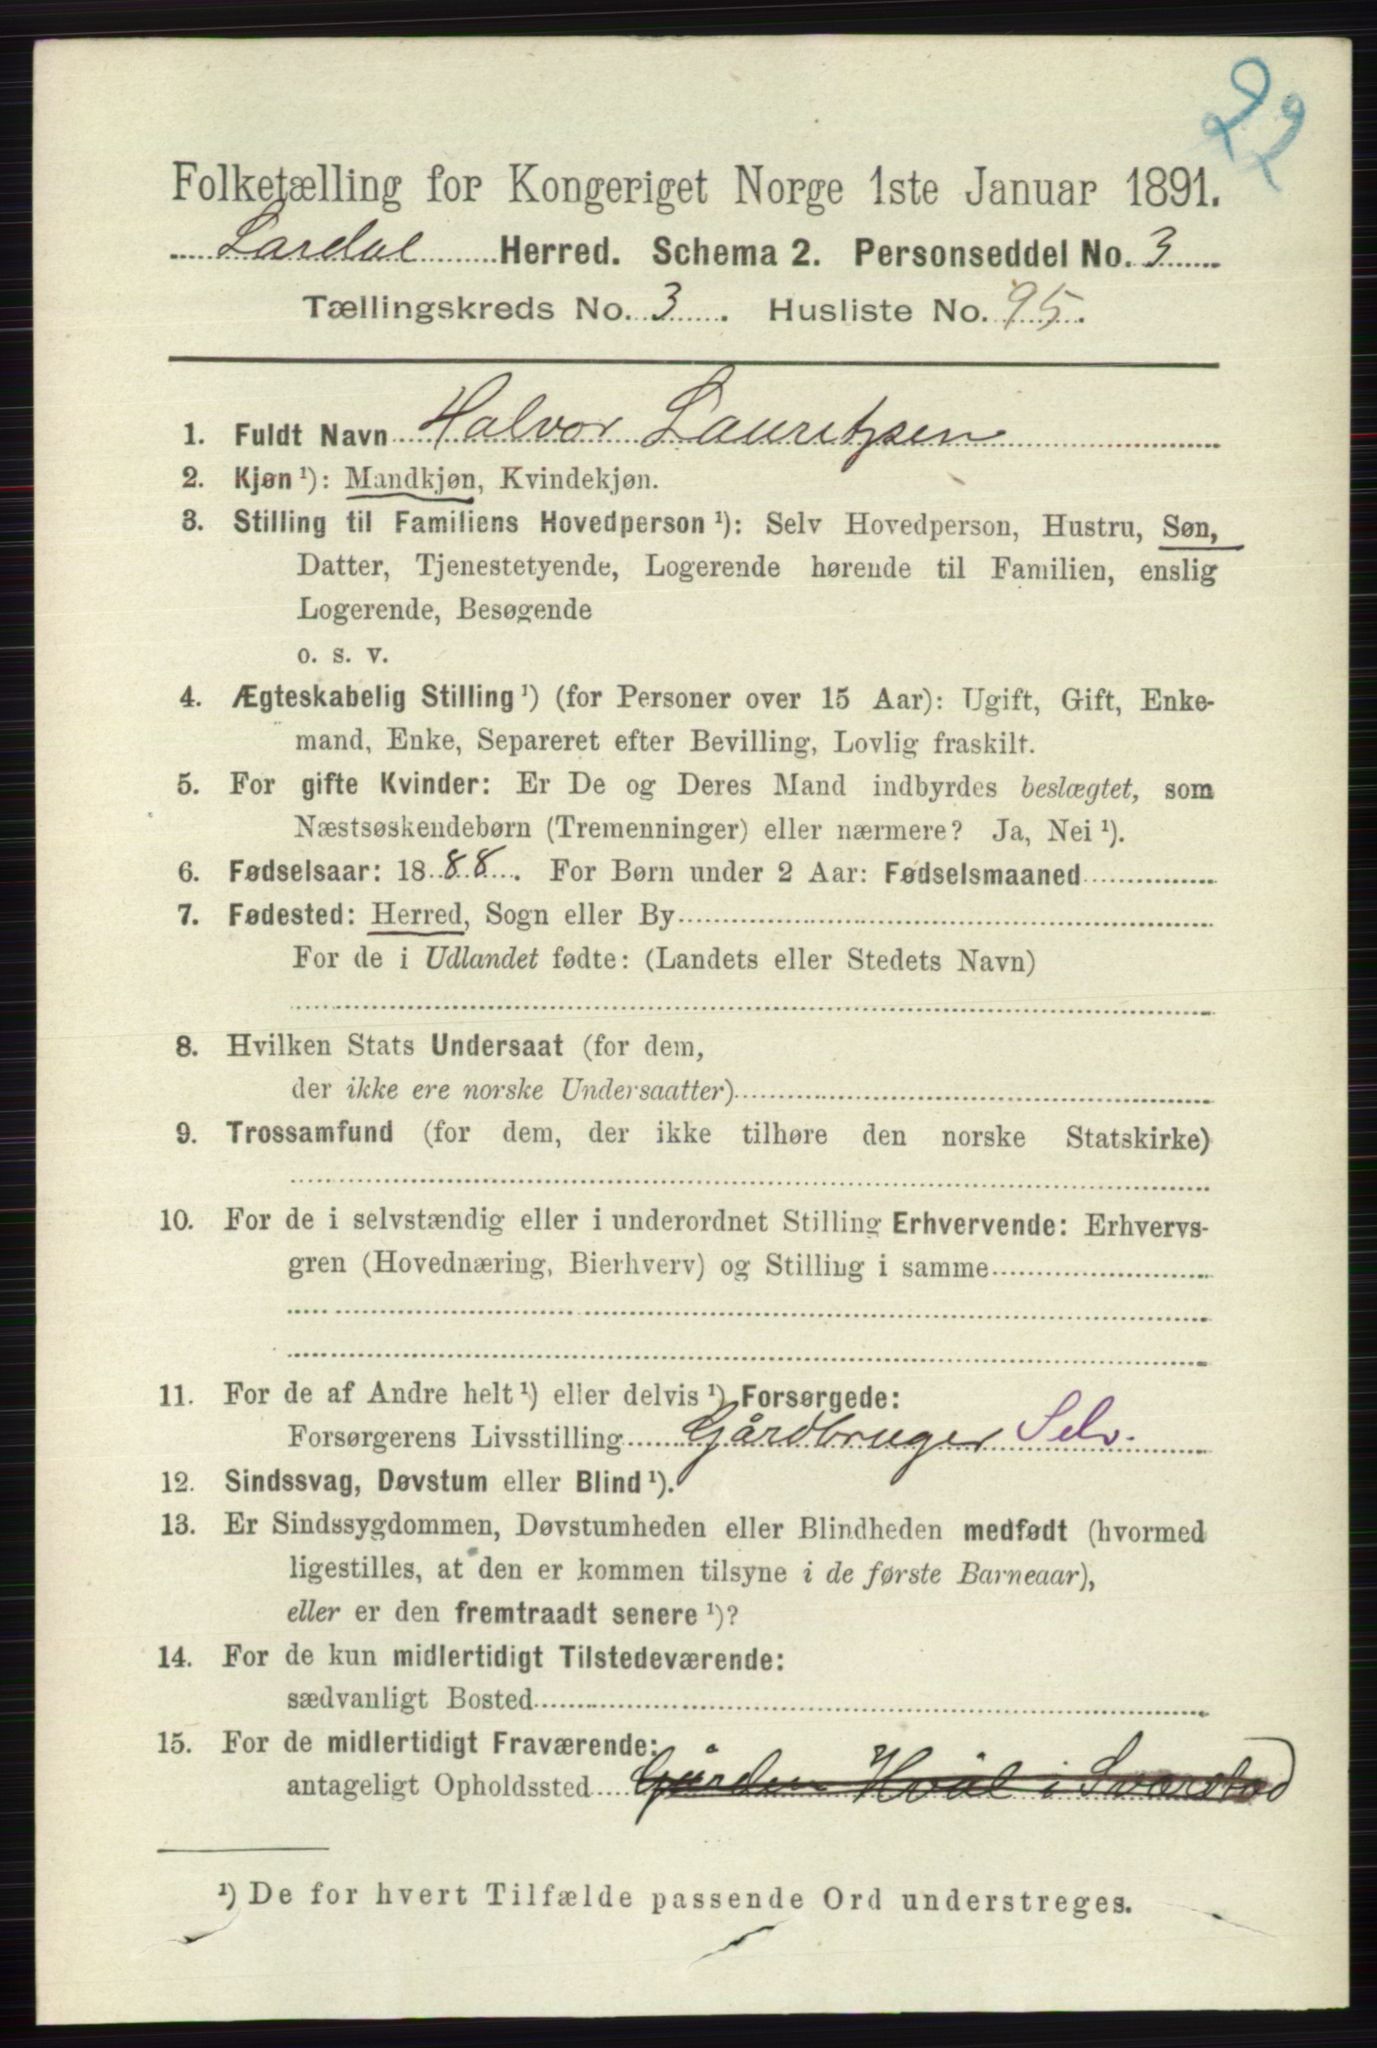 22
Folketælling for Kongeriget Norge 1ste Januar 1891.
Lardal Herred. Schema 2. Personseddel No. 3
Tællingskreds No. 3. Husliste No. 95.
1. Fuldt Navn Halvor Lauritzsen
2. Kjøn ¹): Mandkjøn, Kvindekjøn.
3. Stilling til Familiens Hovedperson ¹): Selv Hovedperson, Hustru, Søn,
Datter, Tjenestetyende, Logerende hørende til Familien, enslig
Logerende, Besøgende
o. s. v.
4. Ægteskabelig Stilling ¹) (for Personer over 15 Aar): Ugift, Gift, Enke-
mand, Enke, Separeret efter Bevilling, Lovlig fraskilt.
5. For gifte Kvinder: Er De og Deres Mand indbyrdes beslægtet, som
Næstsøskendebørn (Tremenninger) eller nærmere? Ja, Nei ¹).
6. Fødselsaar: 1888. For Børn under 2 Aar: Fødselsmaaned
7. Fødested: Herred, Sogn eller By
For de i Udlandet fødte: (Landets eller Stedets Navn)
8. Hvilken Stats Undersaat (for dem,
der ikke ere norske Undersaatter)
9. Trossamfund (for dem, der ikke tilhøre den norske Statskirke)
10. For de i selvstændig eller i underordnet Stilling Erhvervende: Erhvervs-
gren (Hovednæring, Bierhverv) og Stilling i samme
11. For de af Andre helt ¹) eller delvis ¹) Forsørgede:
Forsørgerens Livsstilling Gårdbruger Selv.
12. Sindssvag, Døvstum eller Blind ¹).
13. Er Sindssygdommen, Døvstumheden eller Blindheden medfødt (hvormed
ligestilles, at den er kommen tilsyne i de første Barneaar),
eller er den fremtraadt senere ¹)?
14. For de kun midlertidigt Tilstedeværende:
sædvanligt Bosted
15. For de midlertidigt Fraværende:
antageligt Opholdssted Gården Hvål i Svarstad
¹) De for hvert Tilfælde passende Ord understreges.